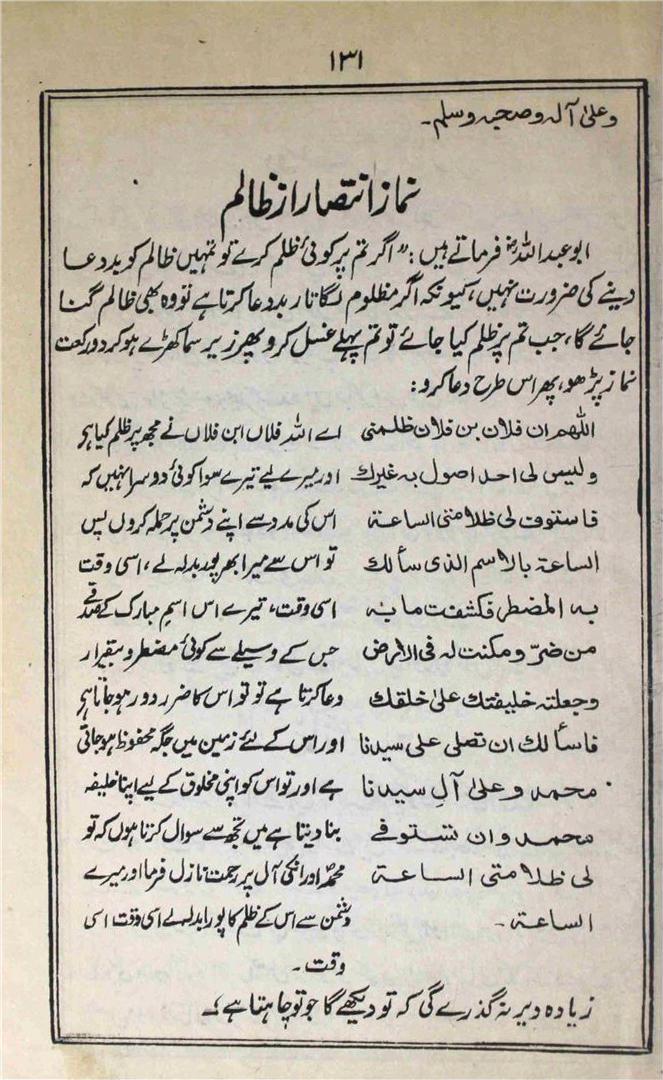 ۱۳۱
وعلىٰ آلہ وصحبہ وسلم۔
نماز انتصار از ظالم
ابوعبداللہؓ فرماتے ہیں: "اگر تم پر کوئی ظلم کرے تو تمہیں ظالم کو بددعا
دینے کی ضرورت نہیں، کیونکہ اگر مظلوم لگاتار بددعا کرتا ہے تو وہ بھی ظالم گنا
جائے گا، جب تم پر ظلم کیا جائے تو تم پہلے غسل کرو پھر زیر سما کھڑے ہو کر دو رکعت
نماز پڑھو، پھر اس طرح دعا کرو:
اللهم ان فلان بن فلان ظلمنى
وليس لى احد اصول به غيرك
فاستوف لى ظلامتى الساعة
الساعة بالاسم الذى سألك
به المضطر فكشفت ما به
من ضرّ ومكنت له فى الارض
وجعلته خليفتك علىٰ خلقك
فاسألك ان تصلى على سيدنا
محمد وعلىٰ آلِ سيدنا
محمد وان تستوفے
لى ظلامتى الساعة
الساعة۔
اے اللہ فلاں ابن فلاں نے مجھ پر ظلم کیا ہے
اور میرے لیے تیرے سوا کوئی دوسرا نہیں کہ
اس کی مدد سے اپنے دشمن پر حملہ کروں پس
تو اس سے میرا بھرپور بدلہ لے، اسی وقت
اسی وقت، تیرے اس اسمِ مبارک کے صدقے
جس کے وسیلے سے کوئی مضطر و بیقرار
دعا کرتا ہے تو تو اس کا ضرر دور ہو جاتا ہے
اور اس کے لئے زمین میں جگہ محفوظ ہو جاتی
ہے اور تو اس کو اپنی مخلوق کے لیے اپنا خلیفہ
بنا دیتا ہے میں تجھ سے سوال کرتا ہوں کہ تو
محمدؐ اور انکی آل پر رحمت نازل فرما اور میرے
دشمن سے اس کے ظلم کا پورا بدلہ لے اسی وقت اسی
وقت۔
زیادہ دیر نہ گذرے گی کہ تو دیکھے گا جو تو چاہتا ہے؛۔